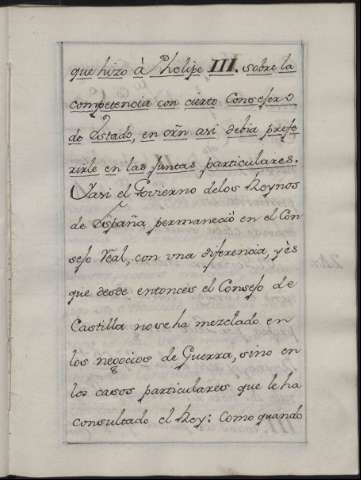 que hizo â Phelipe III. sobre la
competencia con cierto Consejero
de Estado, en orn asi debia prefe
rirle en las Juntas particulares.
Yasi el Govierno delos Reynos
de España, permaneciò en el Con
sejo Rèal, con vna diferencia, y ès
que desde entonces el Consejo de
Castilla no se ha mezclado en
los negocios de Guerra, sino en
los casos particulares que le ha
consultado el Rey: Como quando